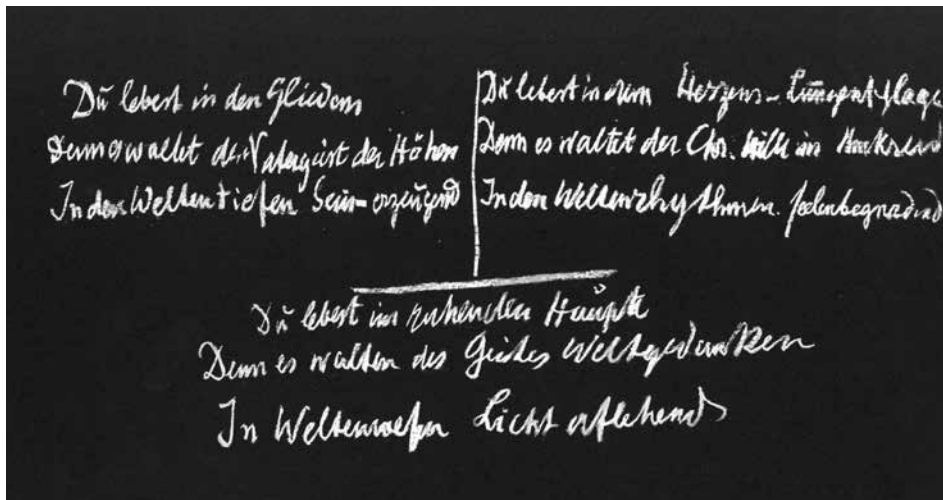 Du lebest in den Gliedern
Denn es waltet der Vatergeist der Höhen
In den Weltentiefen Sein-erzeugend
Du lebest in dem Herzens-Lungenschlage
Denn es waltet der Chr. Wille im Umkreis
In den Weltenrhythmen. Seelenbegnadend
Du lebest im ruhenden Haupte
Denn es walten des Geistes Weltgedanken
In Weltenwesen Licht erflehend